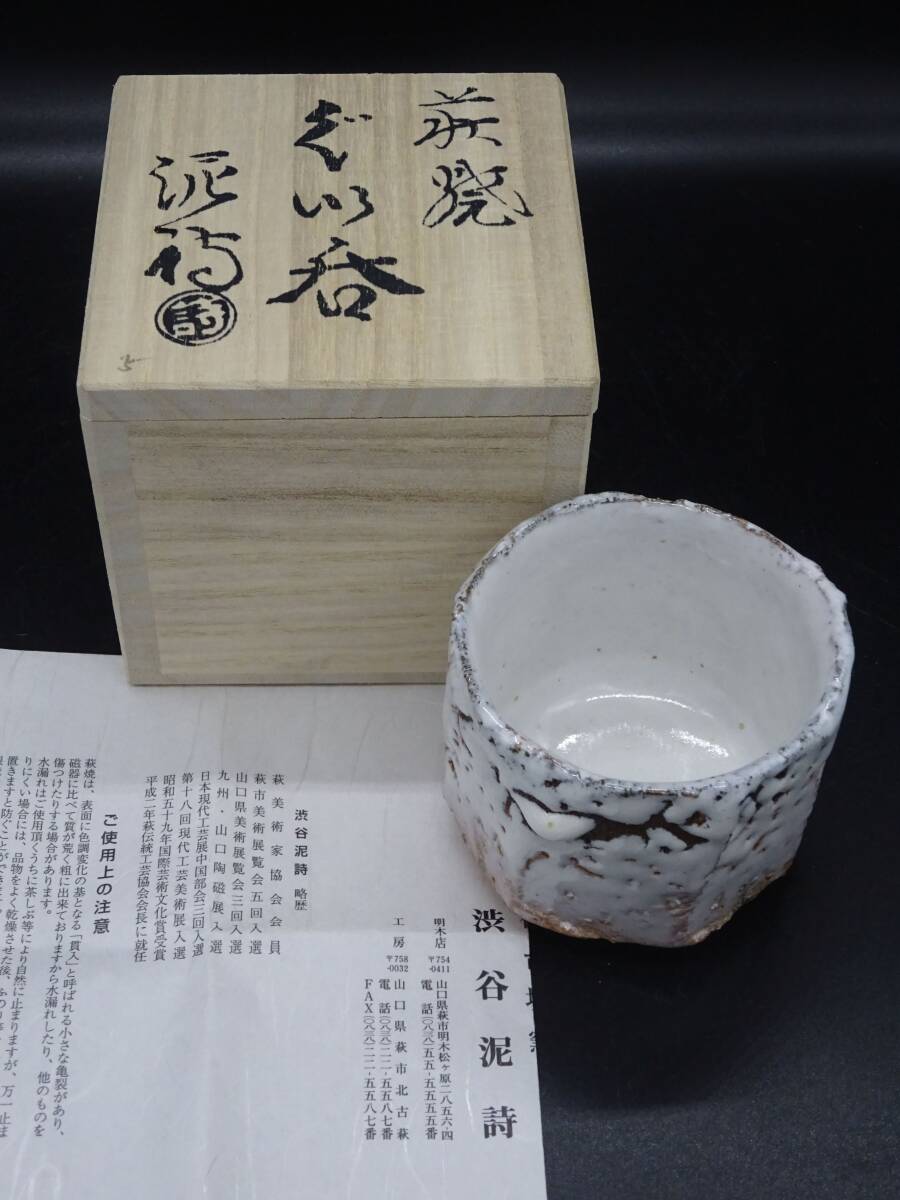 萩焼
ぐい呑
泥詩
渋谷泥詩
明木店 〒754-0411 山口県萩市明木松ヶ原二八五六-四
電話(〇八三八)五五-五五五五番
工房 〒758-0032 山口県萩市北古萩
電話(〇八三八)二二-五五八七番
FAX(〇八三八)二二-五五八七番
渋谷泥詩 略歴
萩美術家協会会員
萩市美術展覧会五回入選
山口県美術展覧会三回入選
九州・山口陶磁展入選
日本現代工芸展中国部会三回入選
第十八回現代工芸美術展入選
昭和五十九年国際芸術文化賞受賞
平成二年萩伝統工芸協会会長に就任
ご使用上の注意
萩焼は、表面に色調変化の基となる「貫入」と呼ばれる小さな亀裂があり、
磁器に比べて質が荒く粗に出来ておりますから水漏れしたり、他のものを
傷つけたりする場合があります。
水漏れはご使用頂くうちに茶しぶ等により自然に止まりますが、万一止ま
りにくい場合には、品物をよく乾燥させた後、
置きますと防ぐことができます